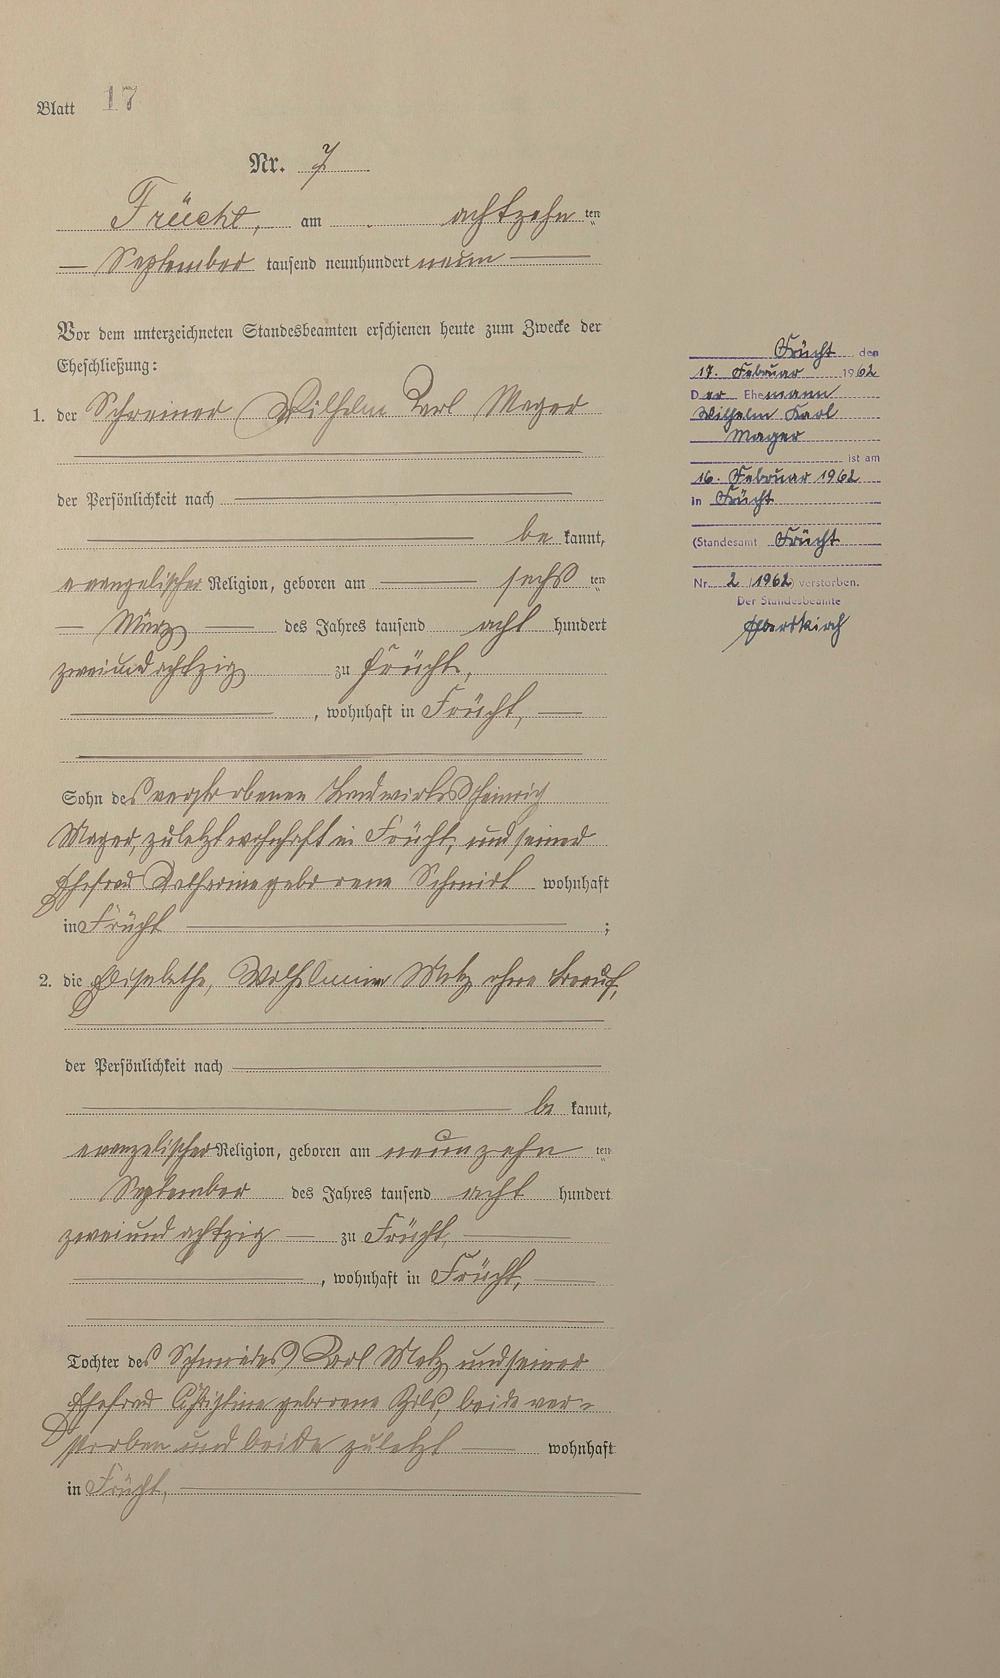 Blatt 17
Nr. 7
Frücht, am achtzehn ten
September tausend neunhundert neun
Vor dem unterzeichneten Standesbeamten erschienen heute zum Zwecke der
Eheschließung:
1. der Schreiner Wilhelm Karl Mager
der Persönlichkeit nach
be kannt,
evangelischer Religion, geboren am sechs ten
März des Jahres tausend acht hundert
zweiundachtzig zu Frücht,
, wohnhaft in Frücht,
Sohn des verstorbenen Landwirts Heinrich
Mager, zuletzt wohnhaft in Frücht, und seiner
Ehefrau Katharine geborene Schmidt wohnhaft
in Frücht ;
2. die Elisabethe, Wilhelmine Metz ohne Beruf,
der Persönlichkeit nach
be kannt,
evangelischer Religion, geboren am neunzehn ten
September des Jahres tausend acht hundert
zweiundachtzig zu Frücht,
, wohnhaft in Frücht,
Tochter des Karl Metz und seiner
Ehefrau Christine geborene beide ver-
storben und beide zuletzt wohnhaft
in Frücht,
Frücht den
17. Februar 1962
Der Ehemann
Wilhelm Karl
Mager
ist am
16. Februar 1962
in Frücht
(Standesamt Frücht
Nr. 2/1962) verstorben.
Der Standesbeamte